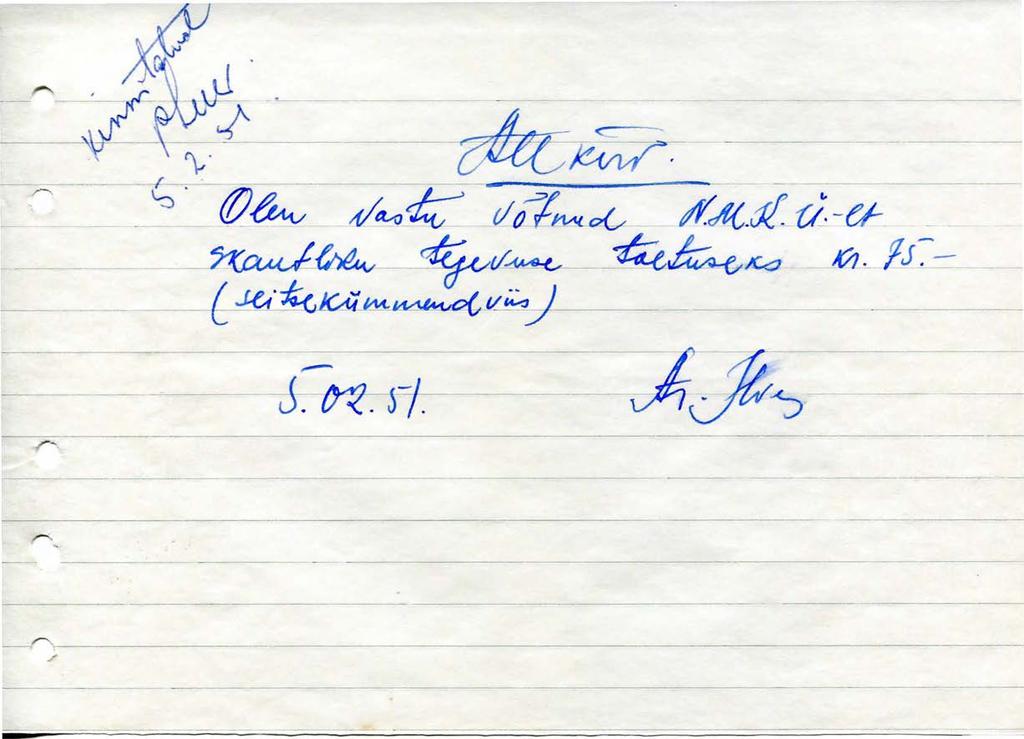 Kinnitatud
5.2.51
Allkiri.
Olen vastu võtnud N.M.K.Ü.-lt
skautliku tegevuse toetuseks kr. 75.–
(seitsekümmendviis)
5.02.51. Ar. Ilves